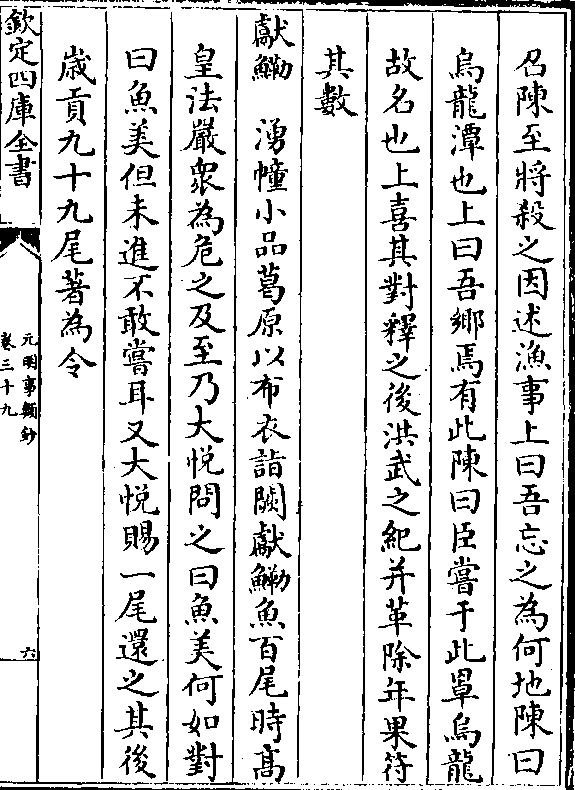 召陳至將殺之因述漁事上曰吾忘之為何地陳曰
烏龍潭也上曰吾鄉焉有此陳曰臣嘗于此罩烏龍
故名也上喜其對釋之後洪武之紀并革除年果符
其數
獻鰳　湧幢小品葛原以布衣詣闕獻鰳魚百尾時高
皇法嚴衆為危之及至乃大悅問之曰魚美何如對
曰魚美但未進不敢嘗耳又大悅賜一尾還之其後
歲貢九十九尾著為令
欽定四庫全書
元明事類鈔
卷三十九
六